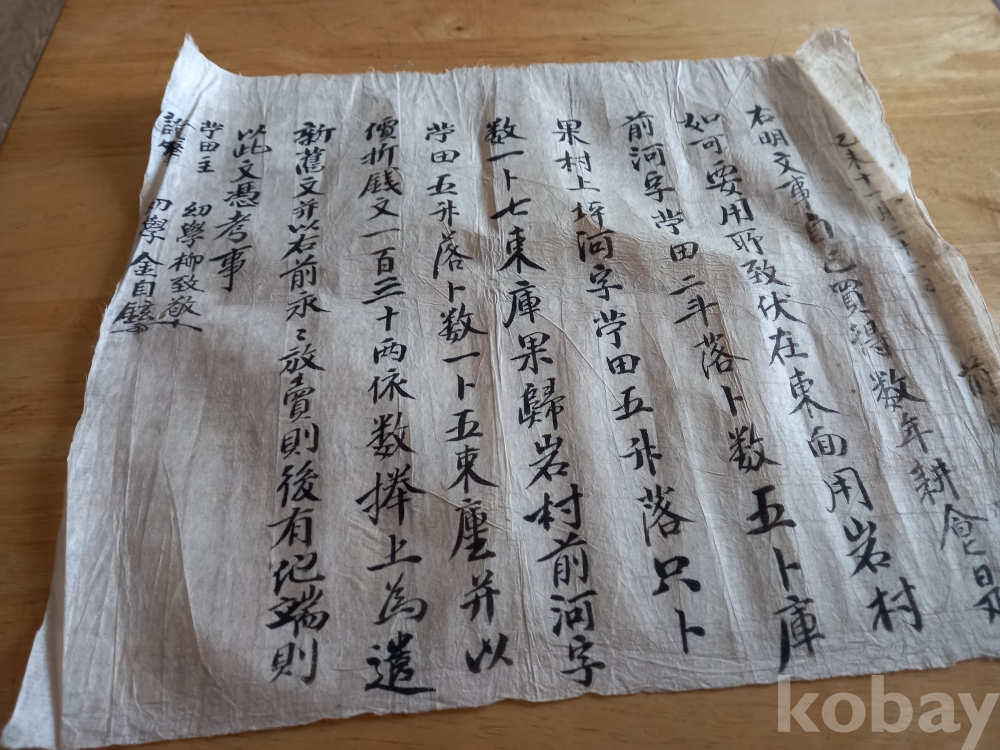 乙未十一月二十二日 前
右明文事自己買得数年耕食是
如可要用所致伏在東面用岩村
前河字畓田二斗落卜数五卜庫
果村上坪河字畓田五升落只卜
数一卜七束庫果歸岩村前河字
畓田五升落卜数一卜五束㕓并以
價折錢文一百三十兩依数捧上為遣
新舊文并以右前永〻放賣則後有他端則
以此文憑考事
畓田主 幼學柳致敬
證筆 幼學 金自
kobay